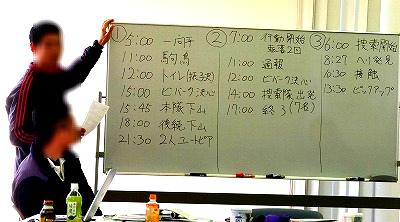 ① 5:00 一向平
11:00 駒鳥
12:00 トイレ(振子沢)
15:00 ビバーク決心
15:45 本隊下山
18:00 後続下山
21:30 2人ユートピア
② 7:00 行動開始
11:00 通報
12:00 ビバーク決心
14:00 捜索隊出発
17:00 終了(7名)
③ 6:00 捜索開始
8:27 ヘリ発見
10:30 接触
13:30 ピックアップ